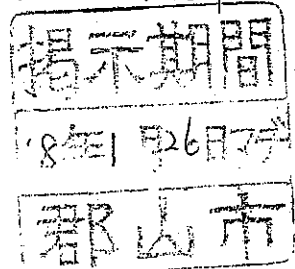 掲示期間
'8年1月26日マデ
郡山市